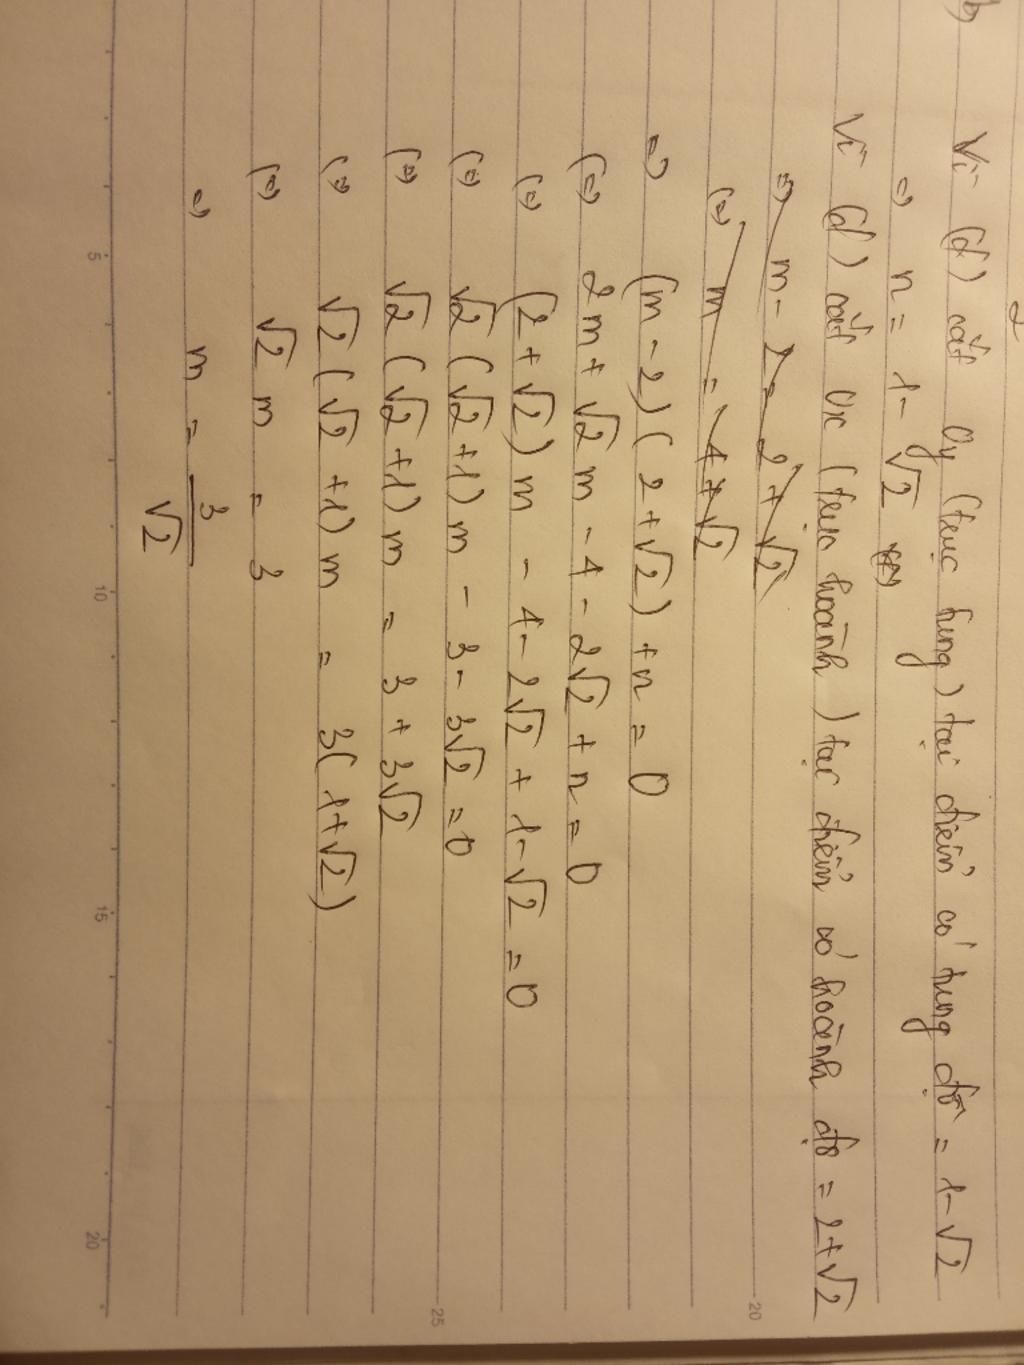 b)
2
Vì (d) cắt Oy (trục tung) tại điểm có tung độ = 1-√2
=> n = 1-√2 (*)
Vì (d) cắt Ox (trục hoành) tại điểm có hoành độ = 2+√2
=> m - 2 = 2+√2
(=) m = 4+√2
=> (m-2)(2+√2)+n = 0
(=) 2m+√2m-4-2√2+n=0
(=) (2+√2)m - 4-2√2+1-√2=0
(=) √2(√2+1)m - 3-3√2=0
(=) √2(√2+1)m = 3+3√2
(=) √2(√2+1)m = 3(1+√2)
(=) √2m = 3
=) m = 3/√2
5 10 15 20
20
25